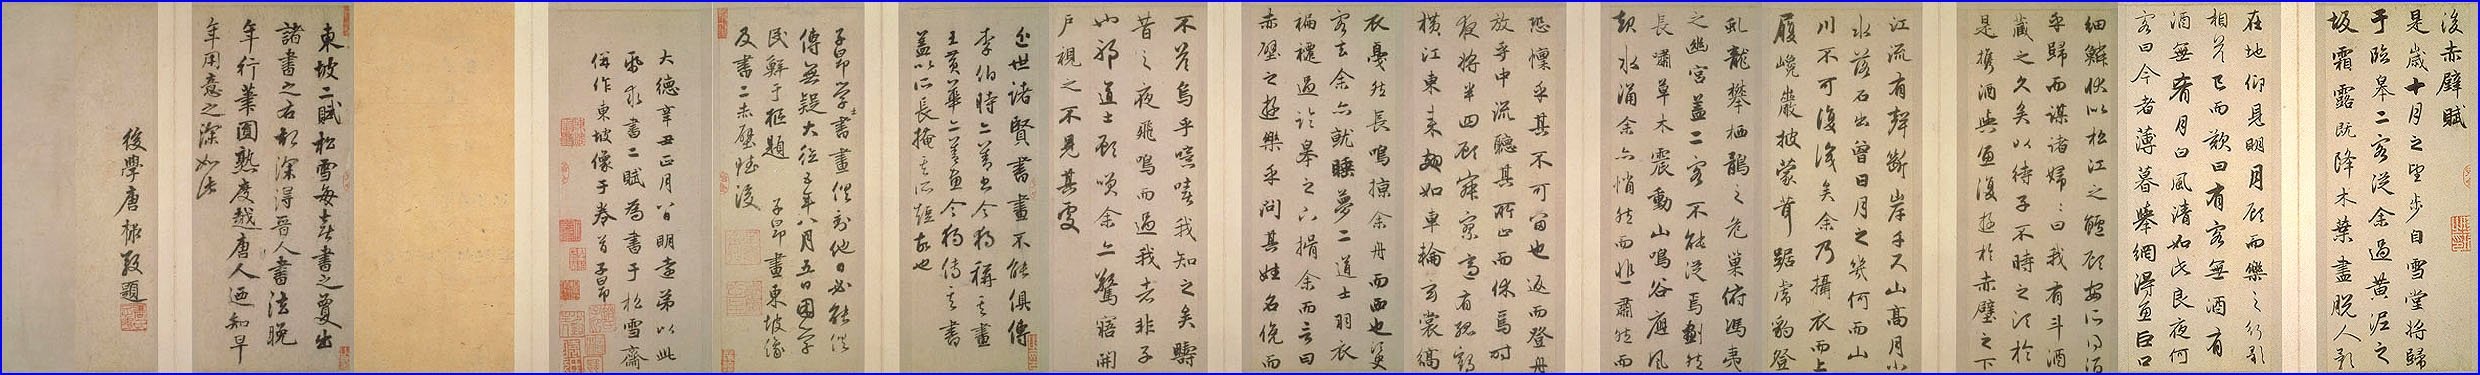 後赤壁賦
是歲十月之望步自雪堂將歸
于臨皋二客從余過黃泥之
坂霜露既降木葉盡脫人影
在地仰見明月顧而樂之行歌
相答已而歎曰有客無酒有
酒無肴月白風清如此良夜何
客曰今者薄暮舉網得魚巨口
細鱗狀似松江之鱸顧安所得酒
乎歸而謀諸婦婦曰我有斗酒
藏之久矣以待子不時之須於
是攜酒與魚復遊於赤壁之下
江流有聲斷岸千尺山高月小
水落石出曾日月之幾何而山
川不可復識矣余乃攝衣而上
履巉巖披蒙茸踞虎豹登
虬龍攀栖鶻之危巢俯馮夷
之幽宮蓋二客不能從焉劃然
長嘯草木震動山鳴谷應風
起水涌余亦悄然而悲肅然而
恐懍乎其不可留也返而登舟
放乎中流聽其所止而休焉時
夜將半四顧寂寥適有孤鶴
橫江東來翅如車輪玄裳縞
衣戛然長鳴掠余舟而西也須臾
客去余亦就睡夢二道士羽衣
褊褼過臨皋之下揖余而言曰
赤壁之遊樂乎問其姓名俛而
不答烏乎噫嘻我知之矣疇
昔之夜飛鳴而過我者非子
也邪道士顧笑余亦驚寤開
戶視之不見其處
近世諸賢書畫不能俱傳
李伯時亦善書今獨稱其畫
王黃華亦善畫今獨傳其書
蓋以所長掩其所短故也
子昂學士書畫俱到他日必能俱
傳無疑大德五年八月五日困學
民鮮于樞題 子昂畫東坡像
及書二赤壁賦後
大德辛丑正月八日明遠弟以此
紙求書二賦為書于松雪齋
併作東坡像于卷首子昂
東坡二賦松雪每喜書之夐出
諸書之右初深得晉人書法晚
年行筆圓熟度越唐人迺知早
年用意之深如此
後學唐棣敬題